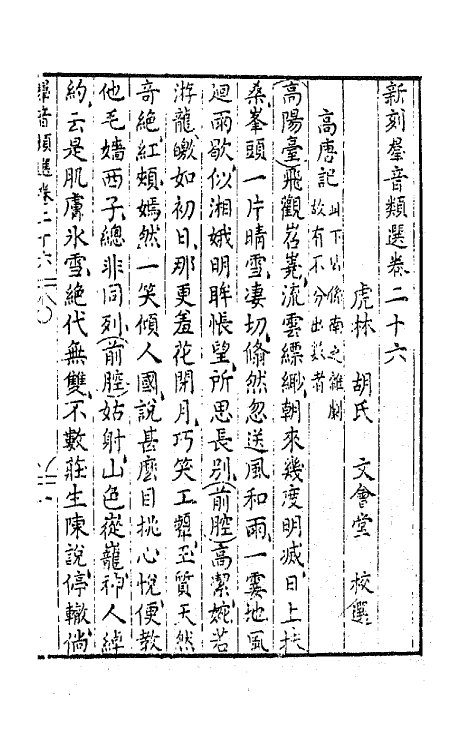 新刻羣音類選卷二十六
虎林 胡氏 文會堂 校選
高唐記 此下皆係南之雜劇
故有不分出數者
高陽臺飛觀岧嶤流雲縹緲朝來幾度明滅日上扶
桑峯頭一片晴雪凄切翛然忽送風和雨一霎地風
廻雨歇似湘娥明眸悵望所思長别前腔高潔婉若
游龍皦如初日那更羞花閉月巧笑工顰玉質天然
奇絕紅頰嫣然一笑傾人國說甚麼目挑心悅便教
他毛嬙西子總非同列前腔姑射山色嵸巃神人綽
約云是肌膚氷雪絕代無雙不數莊生陳說停轍倘
羣音類選卷二十六